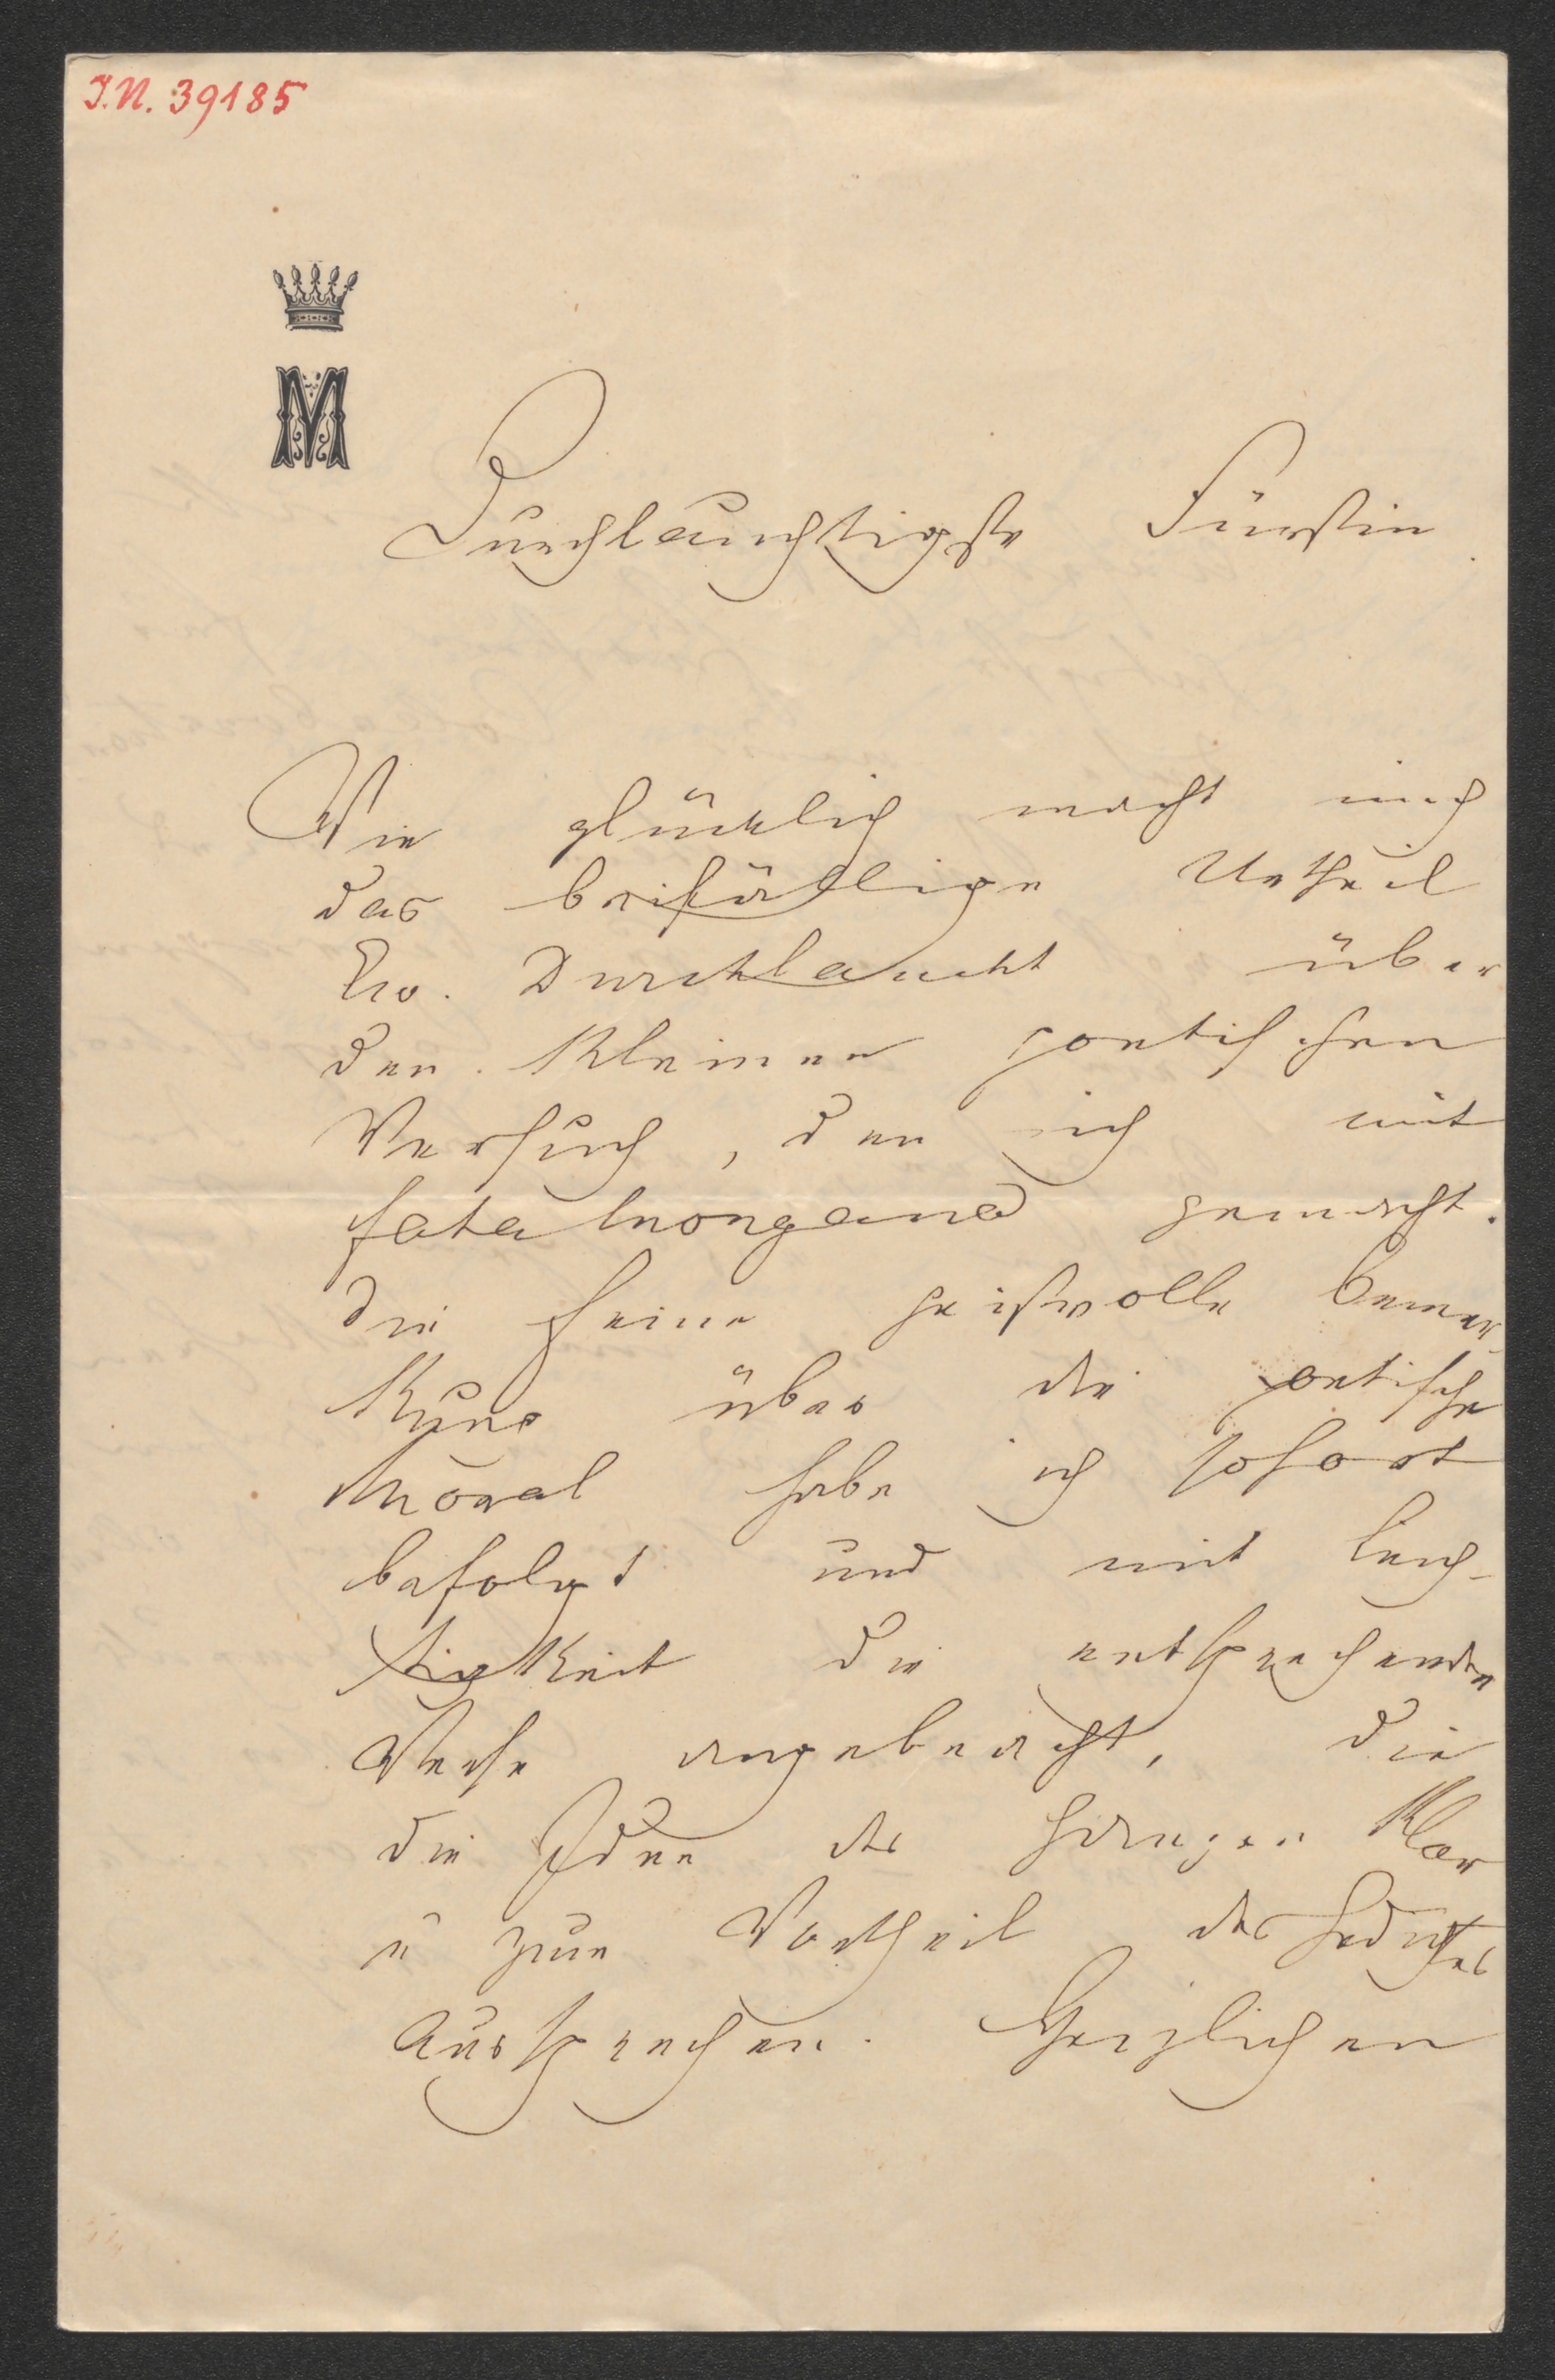 I.N. 39185
M
Durchlauchtigste Fürstin
Wie glücklich macht mich
das beifällige Urtheil
Ew. Durchlaucht über
den kleinen poetischen
Versuch, den ich mit
fatamorgana gemacht.
Die feine geistvolle Bemer-
kung über die poetische
Moral habe ich sofort
befolgt und mit Leich-
tigkeit die entsprechenden
Verse angebracht, die
die Idee des Ganzen klar
u zum Vortheil des Gedichtes
aussprechen. Herzlichen